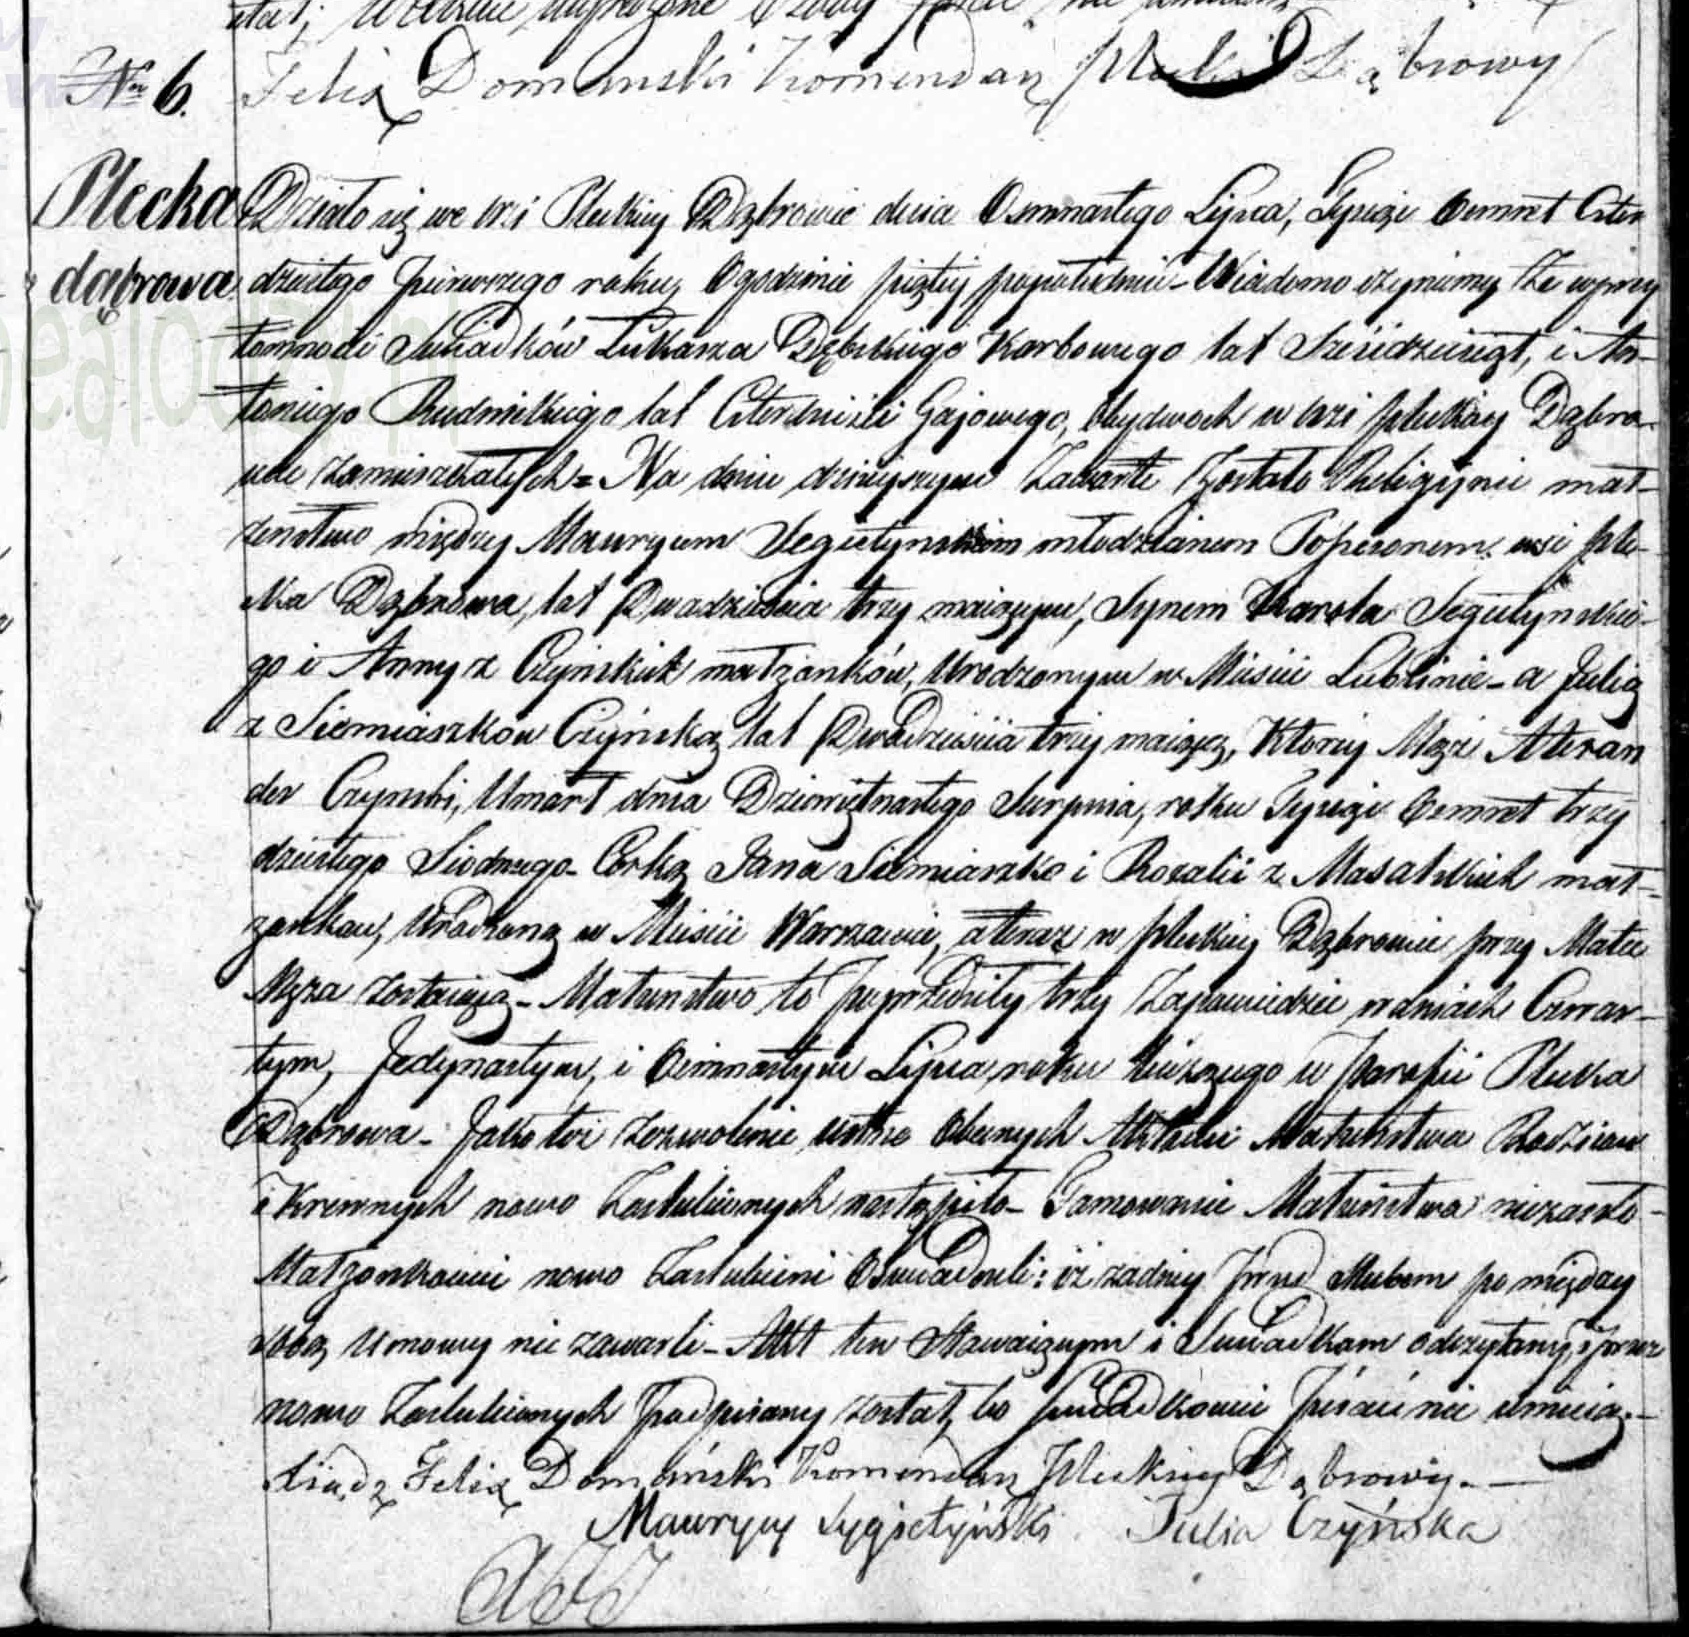 Felix Domanski Komendarz Pleckiej Dąbrowy
No 6.
Plecka
dąbrowa.
Działo się we wsi Pleckiey Dąbrowie dnia Osmnastego Lipca, Tysiąc Osmset Czter
dziestego pierwszego roku, O godzinie piątej popołudniu - Wiadomo czyniemy że w przy
tomności Swiadków Łukasza Dębskiego Karbowego lat Sześcdziesiąt, i An-
toniego Rudnickiego lat Czterdzieści Gajowego, obydwoch w wsi pleckiey Dąbro-
wie zamieszkałych = Na dniu dzisiejszym Zawarte Zostało Religijnie mał-
żeństwo między Maurycym Segietynskiem młodzianem wsi ple-
cka Dąbrowa, lat Dwadzieścia trzy maiącym, Synem Karola Segietynskie-
go i Anny z Czyńskich małżonków, Urodzonym w Mieście Lublinie - a Julią
z Siemiaszków Czyńską lat Dwadzieścia trzy maiącą, Ktorey Mąż Alexan
der Czynski, Umarł dnia Dziewiętnastego Sierpnia, roku Tysiąc Osmset trzy
dziestego Siodmego - Corką Jana Siemiaszko i Rozalii z Masalskich mał-
żonkow, Urodzoną w Mieście Warszawie, a teraz w pleckiey Dąbrowie przy Matce
Męża zostaiącą - Małżeństwo to poprzedziły trzy Zapowiedzie w dniach Czwar-
tym, Jedynastym, i Osmnastym Lipca, roku bieżącego w parafii Plecka
Dąbrowa - Jako też zezwolenie ustne Obecnych Aktowi Małżeństwa Rodziców
i Krewnych nowo Zaslubionych nastąpiło - Tamowanie Małżeństwa niezaszło -
Małżonkowie nowo Zaslubieni Oswiadczyli: iż żadney Przed slubem po między
sobą Umowy nie zawarli - Akt ten Stawaiącym i Swiadkom odczytany, i przez
nowo Zaslubionych Podpisany został, bo Swiadkowie Pisać nie umieią. -
Xiądz Felix Domański Komendarz Pleckiey Dąbrowy. -
Maurycy Sygietyński Julia Czyńska